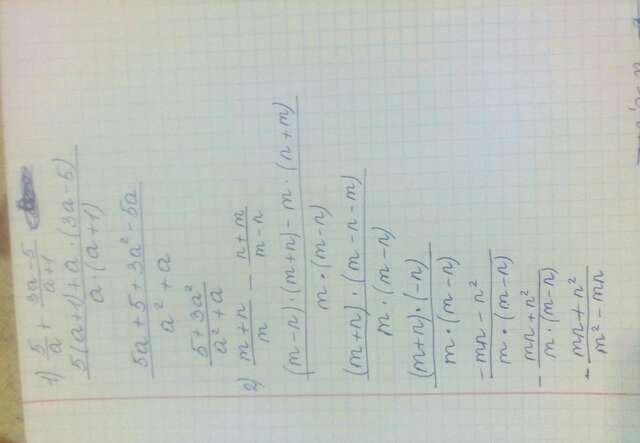 1) 5/a + (3a-5)/(a+1)
(5(a+1)+a·(3a-5))/(a·(a+1))
(5a+5+3a²-5a)/(a²+a)
(5+3a²)/(a²+a)
2) (m+n)/m - (n+m)/(m-n)
((m-n)·(m+n)-m·(n+m))/(m·(m-n))
((m+n)·(m-n-m))/(m·(m-n))
((m+n)·(-n))/(m·(m-n))
(-mn-n²)/(m·(m-n))
- (mn+n²)/(m·(m-n))
- (mn+n²)/(m²-mn)